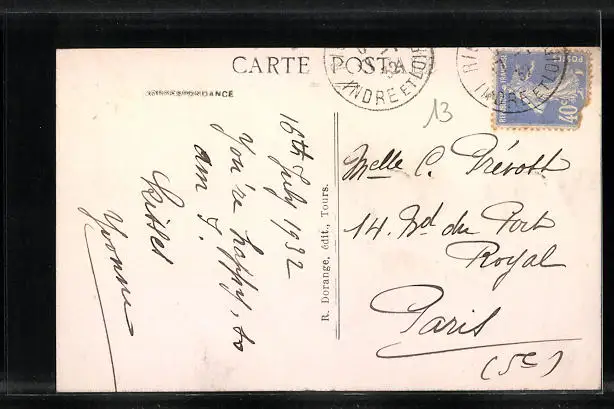 CARTE POSTALE
CORRESPONDANCE
16th July 1932
You're happy, so
am I.
Kisses
Yvonne
R. Dorange, édit., Tours.
INDRE ET LOIRE
INDRE ET LOIRE
40c
13
Melle C. Prévost
14. Bd du Port
Royal
Paris
(5e)